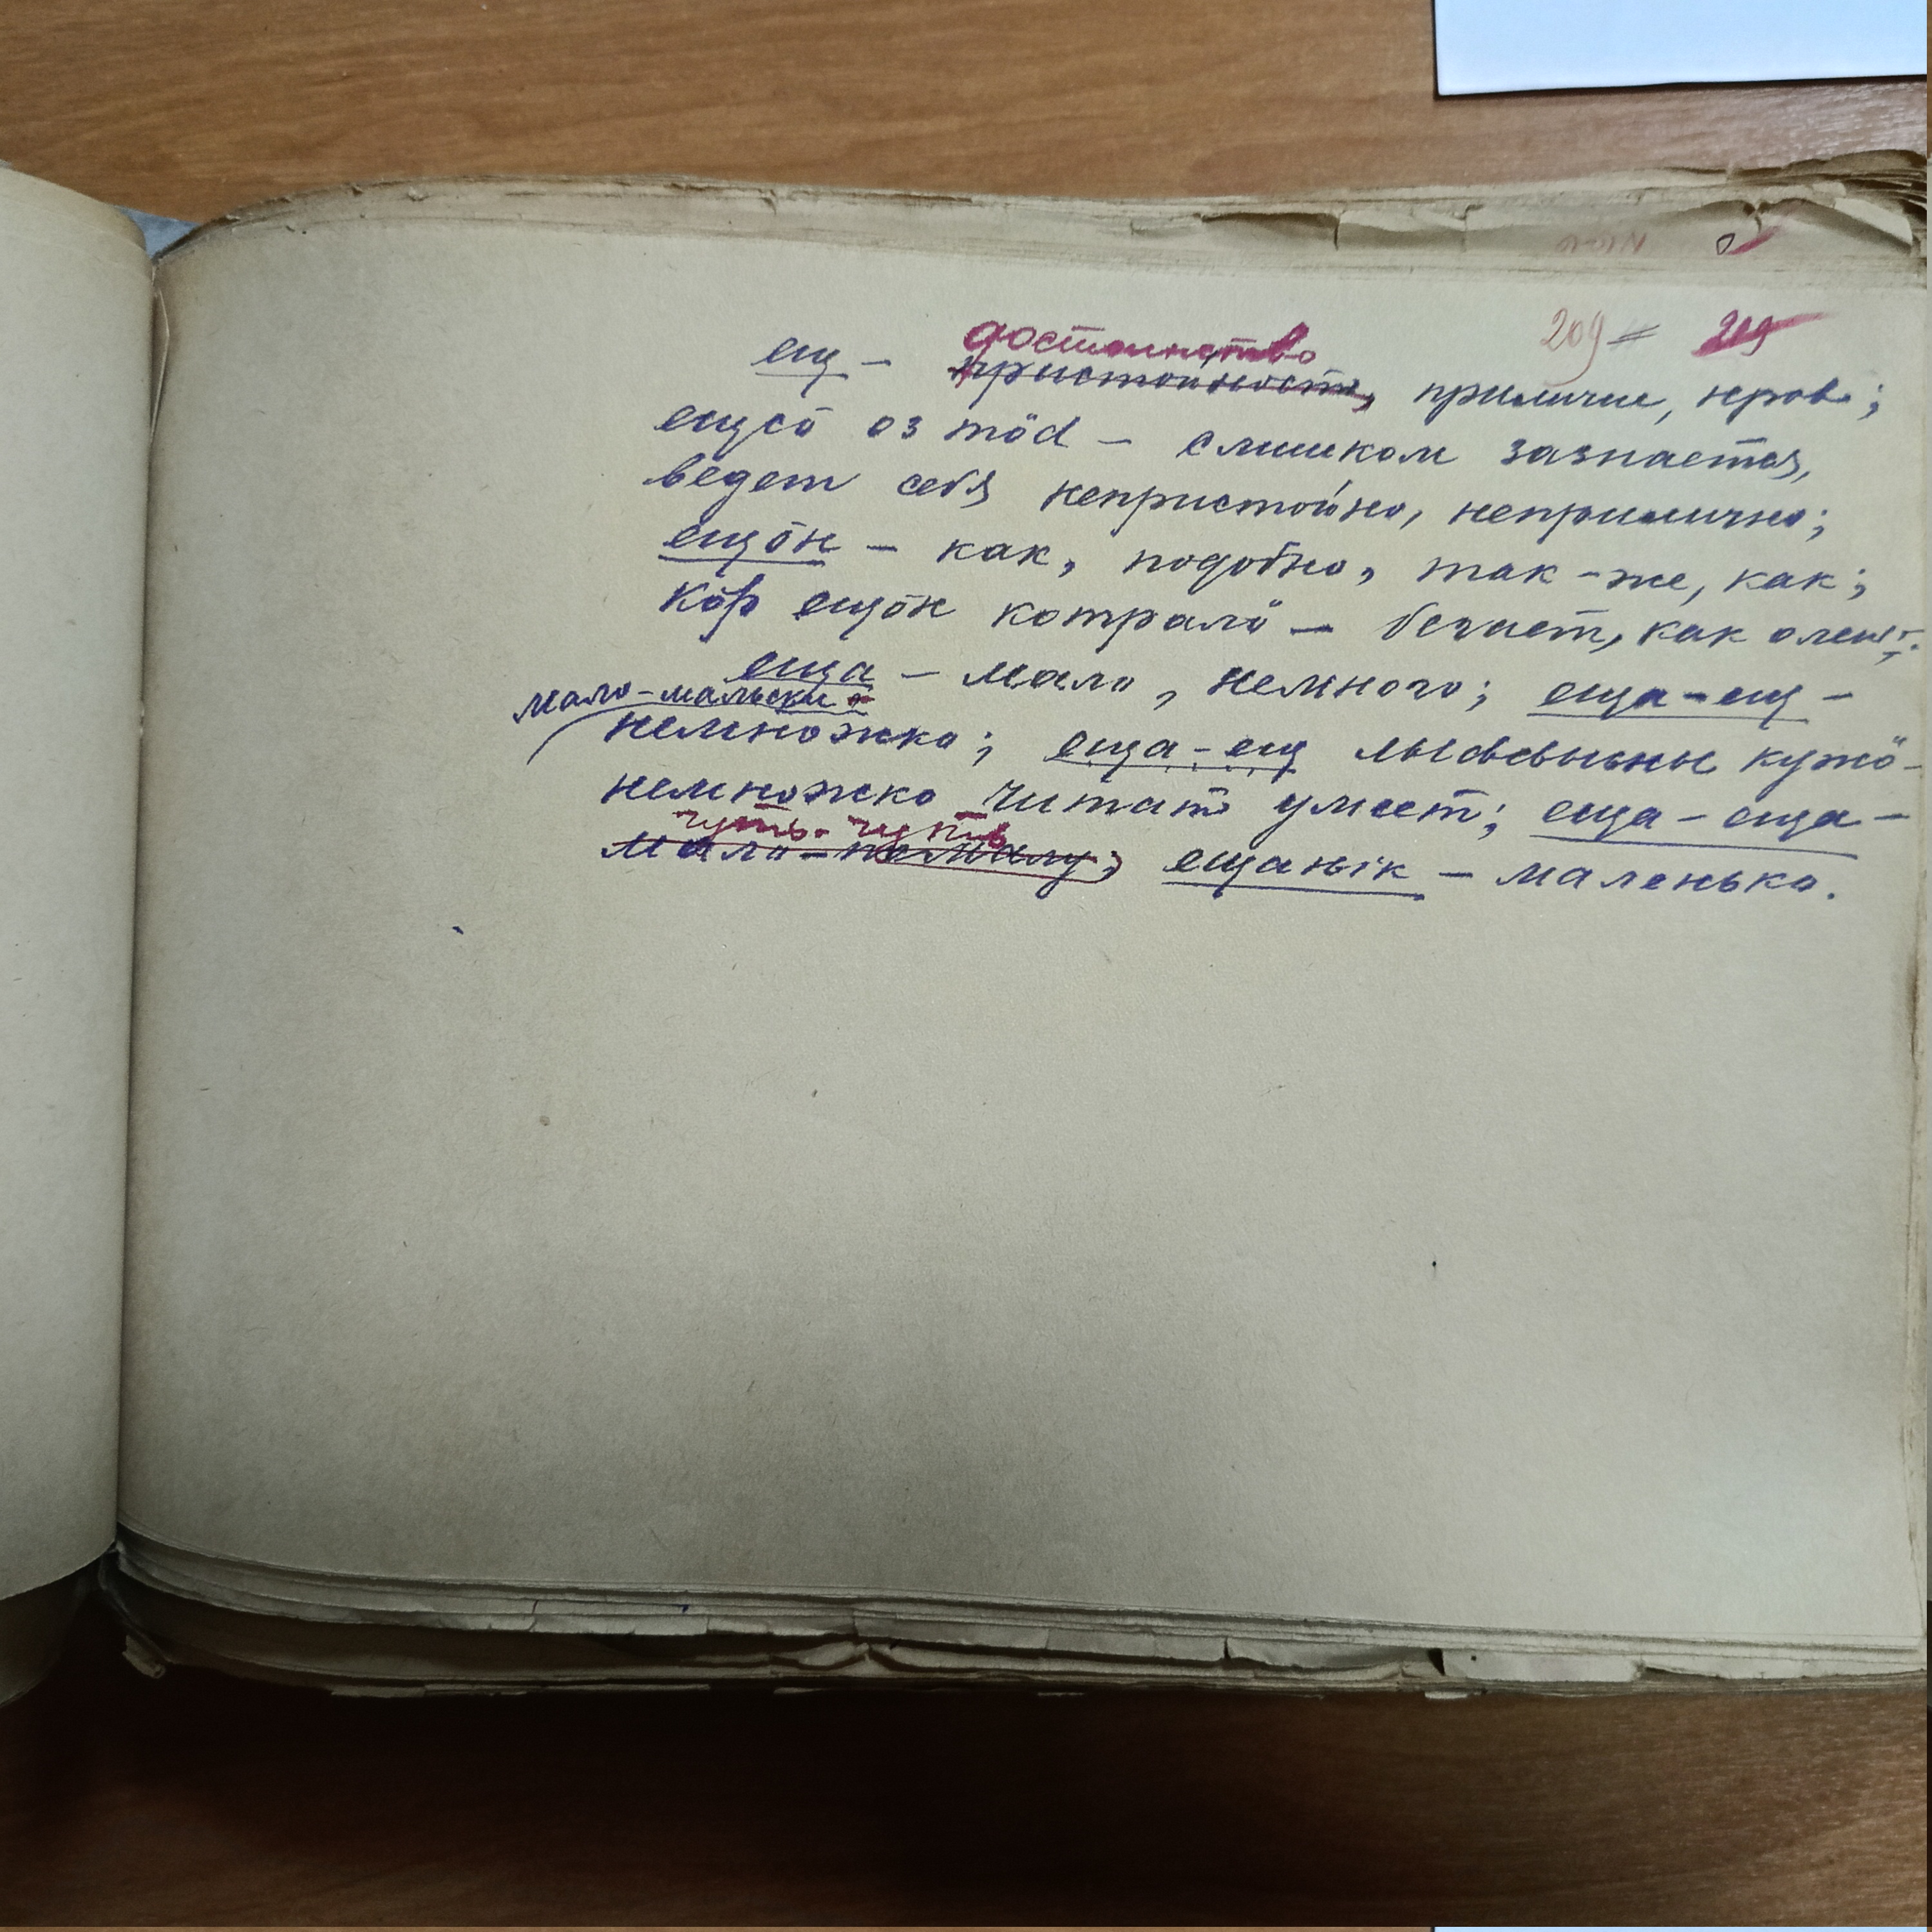 209 = 209
достоинство
ещ – пристойность, приличие, нрав;
ещсö оз тöd – слишком зазнается,
ведет себя непристойно, неприлично;
ещöн – как, подобно, так-же, как;
кöр ещöн котралö – бегает, как олень.
еща – мало, немного; еща-ещ –
мало-мальски
немножко; еща-ещ кужö –
немножко читать умеет; еща – еща –
чуть-чуть
мало-помалу; ещанік – маленько.